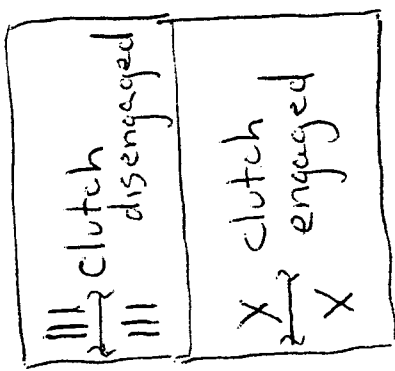 Clutch
disengaged
X clutch
X engaged